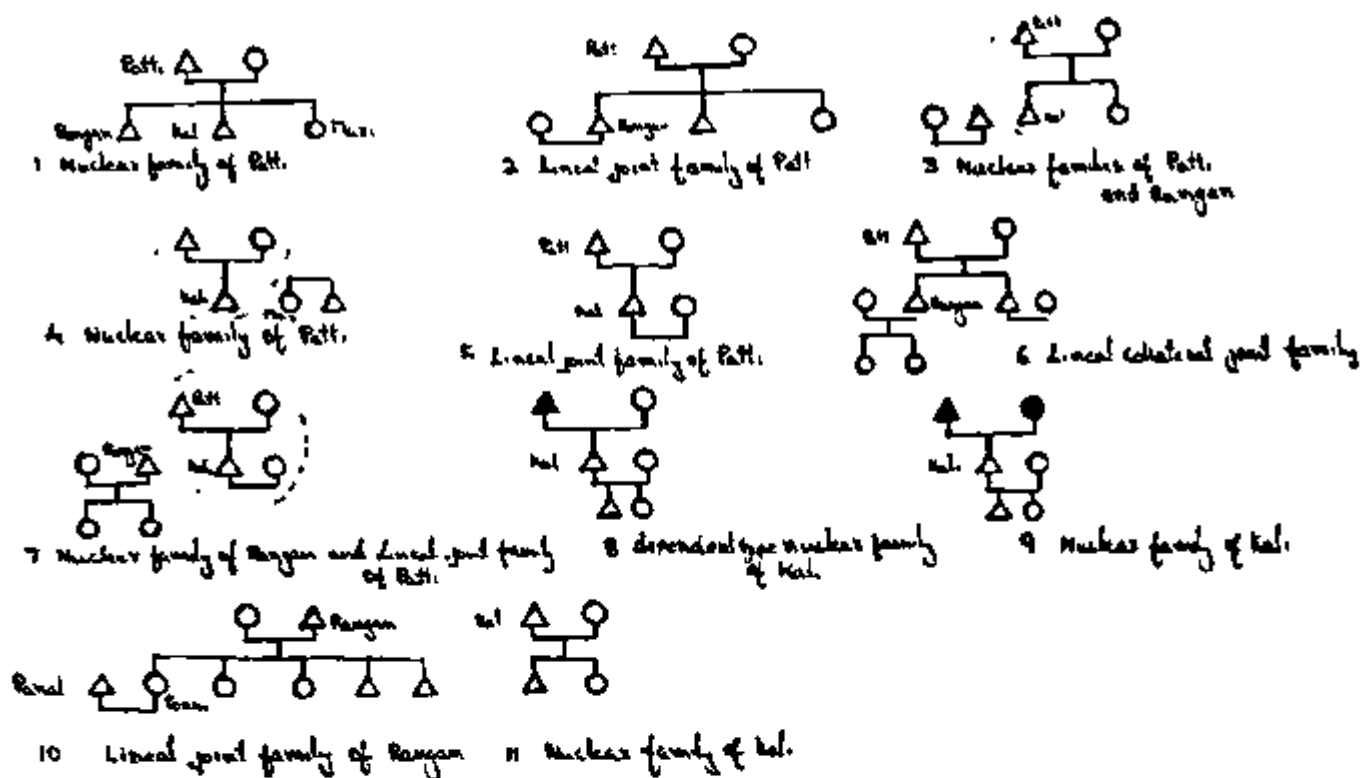 Patt.
Rangan Kal
1 Nuclear family of Patt.
Patt
Rangan
2 Lineal joint family of Patt
Patt
3 Nuclear families of Patt.
and Rangan
Kal.
4 Nuclear family of Patt.
Patt
Kal
5 Lineal joint family of Patt.
Patt
Rangan
6 Lineal collateral joint family
Patt
Rangan Kal.
7 Nuclear family of Rangan and Lineal joint family
of Patt.
Kal
8 dependent type nuclear family
of Kal.
Kal.
9 Nuclear family of Kal.
Rangan
Kal
10 Lineal joint family of Rangan
11 Nuclear family of Kal.